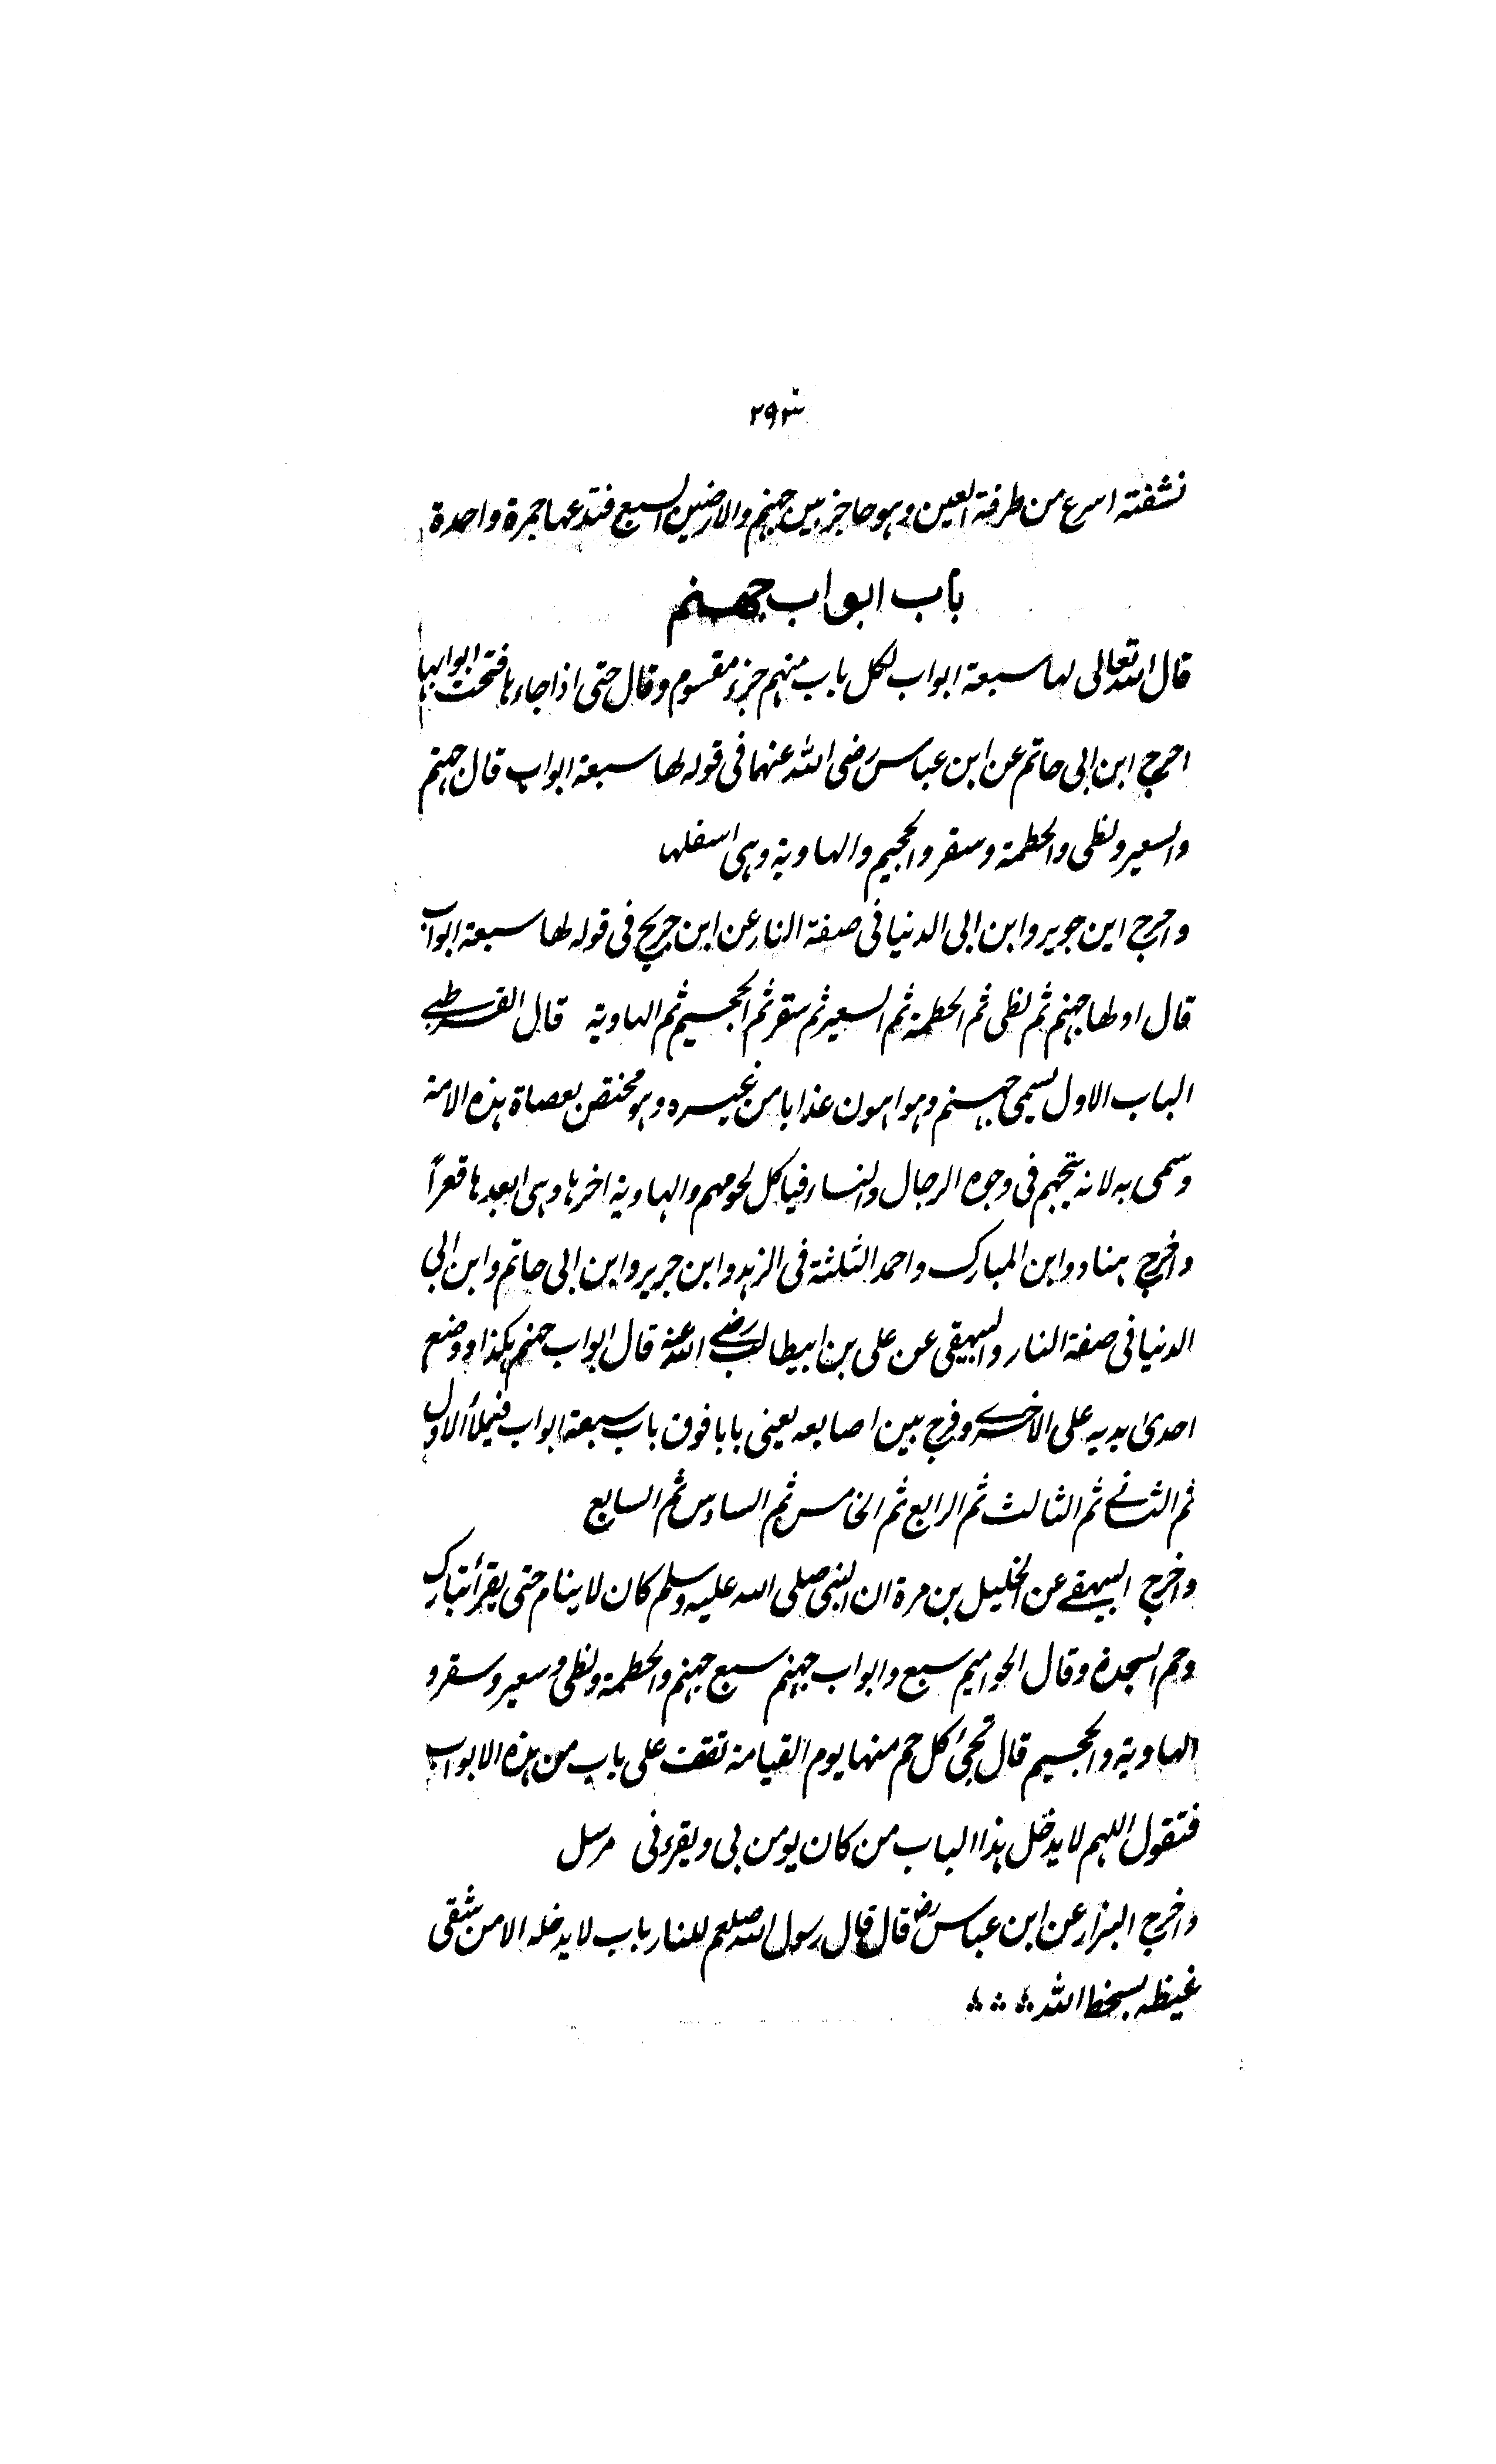 ٢٩٣
نشفته اسرع من طرفة العين وهو حاجز بين جهنم والارضين السبع فتدعها جمرة واحدة
باب ابواب جهنم
قال الله تعالى لها سبعة ابواب لكل باب منهم جزء مقسوم وقال حتى اذا جاءها فتحت ابوابها
اخرج ابن ابى حاتم عن ابن عباس رضى الله عنهما فى قوله لها سبعة ابواب قال جهنم
والسعير ولظى والحطمة وسقر والجحيم والهاوية وهى اسفلها
واخرج ابن جرير وابن ابى الدنيا فى صفة النار عن ابن جريج فى قوله لها سبعة ابواب
قال اولها جهنم ثم لظى ثم الحطمة ثم السعير ثم سقر ثم الجحيم ثم الهاوية قال القرطبى
الباب الاول يسمى جهنم وهو اهون عذابا من غيره وهو مختص بعصاة هذه الامة
وسمى به لانه يتجهم فى وجوه الرجال والنساء فياكل لحومهم والهاوية اخرها وهى ابعدها قعراً
واخرج هناد وابن المبارك واحمد الثلثة فى الزهد وابن جرير وابن ابى حاتم وابن ابى
الدنيا فى صفة النار والبيهقى عن على بن ابيطالب رضى الله عنه قال ابواب جهنم هكذا ووضع
احدى يديه على الاخرى وفرج بين اصابعه يعنى بابا فوق باب سبعة ابواب فيملأ الاول
ثم الثانى ثم الثالث ثم الرابع ثم الخامس ثم السادس ثم السابع
واخرج البيهقى عن الخليل بن مرة ان النبى صلى الله عليه وسلم كان لا ينام حتى يقرأ تبارك
وحم السجدة وقال الحواميم سبع وابواب جهنم سبع جهنم والحطمة ولظى وسعير وسقر و
الهاوية والجحيم قال تجئ كل حم منها يوم القيامة تقف على باب من هذه الابواب
فتقول اللهم لا يدخل هذا الباب من كان يومن بى ويقرءنى مرسل
واخرج البزار عن ابن عباس رض قال قال رسول الله صلعم للنار باب لا يدخله الا من شقى
غيظه بسخط الله